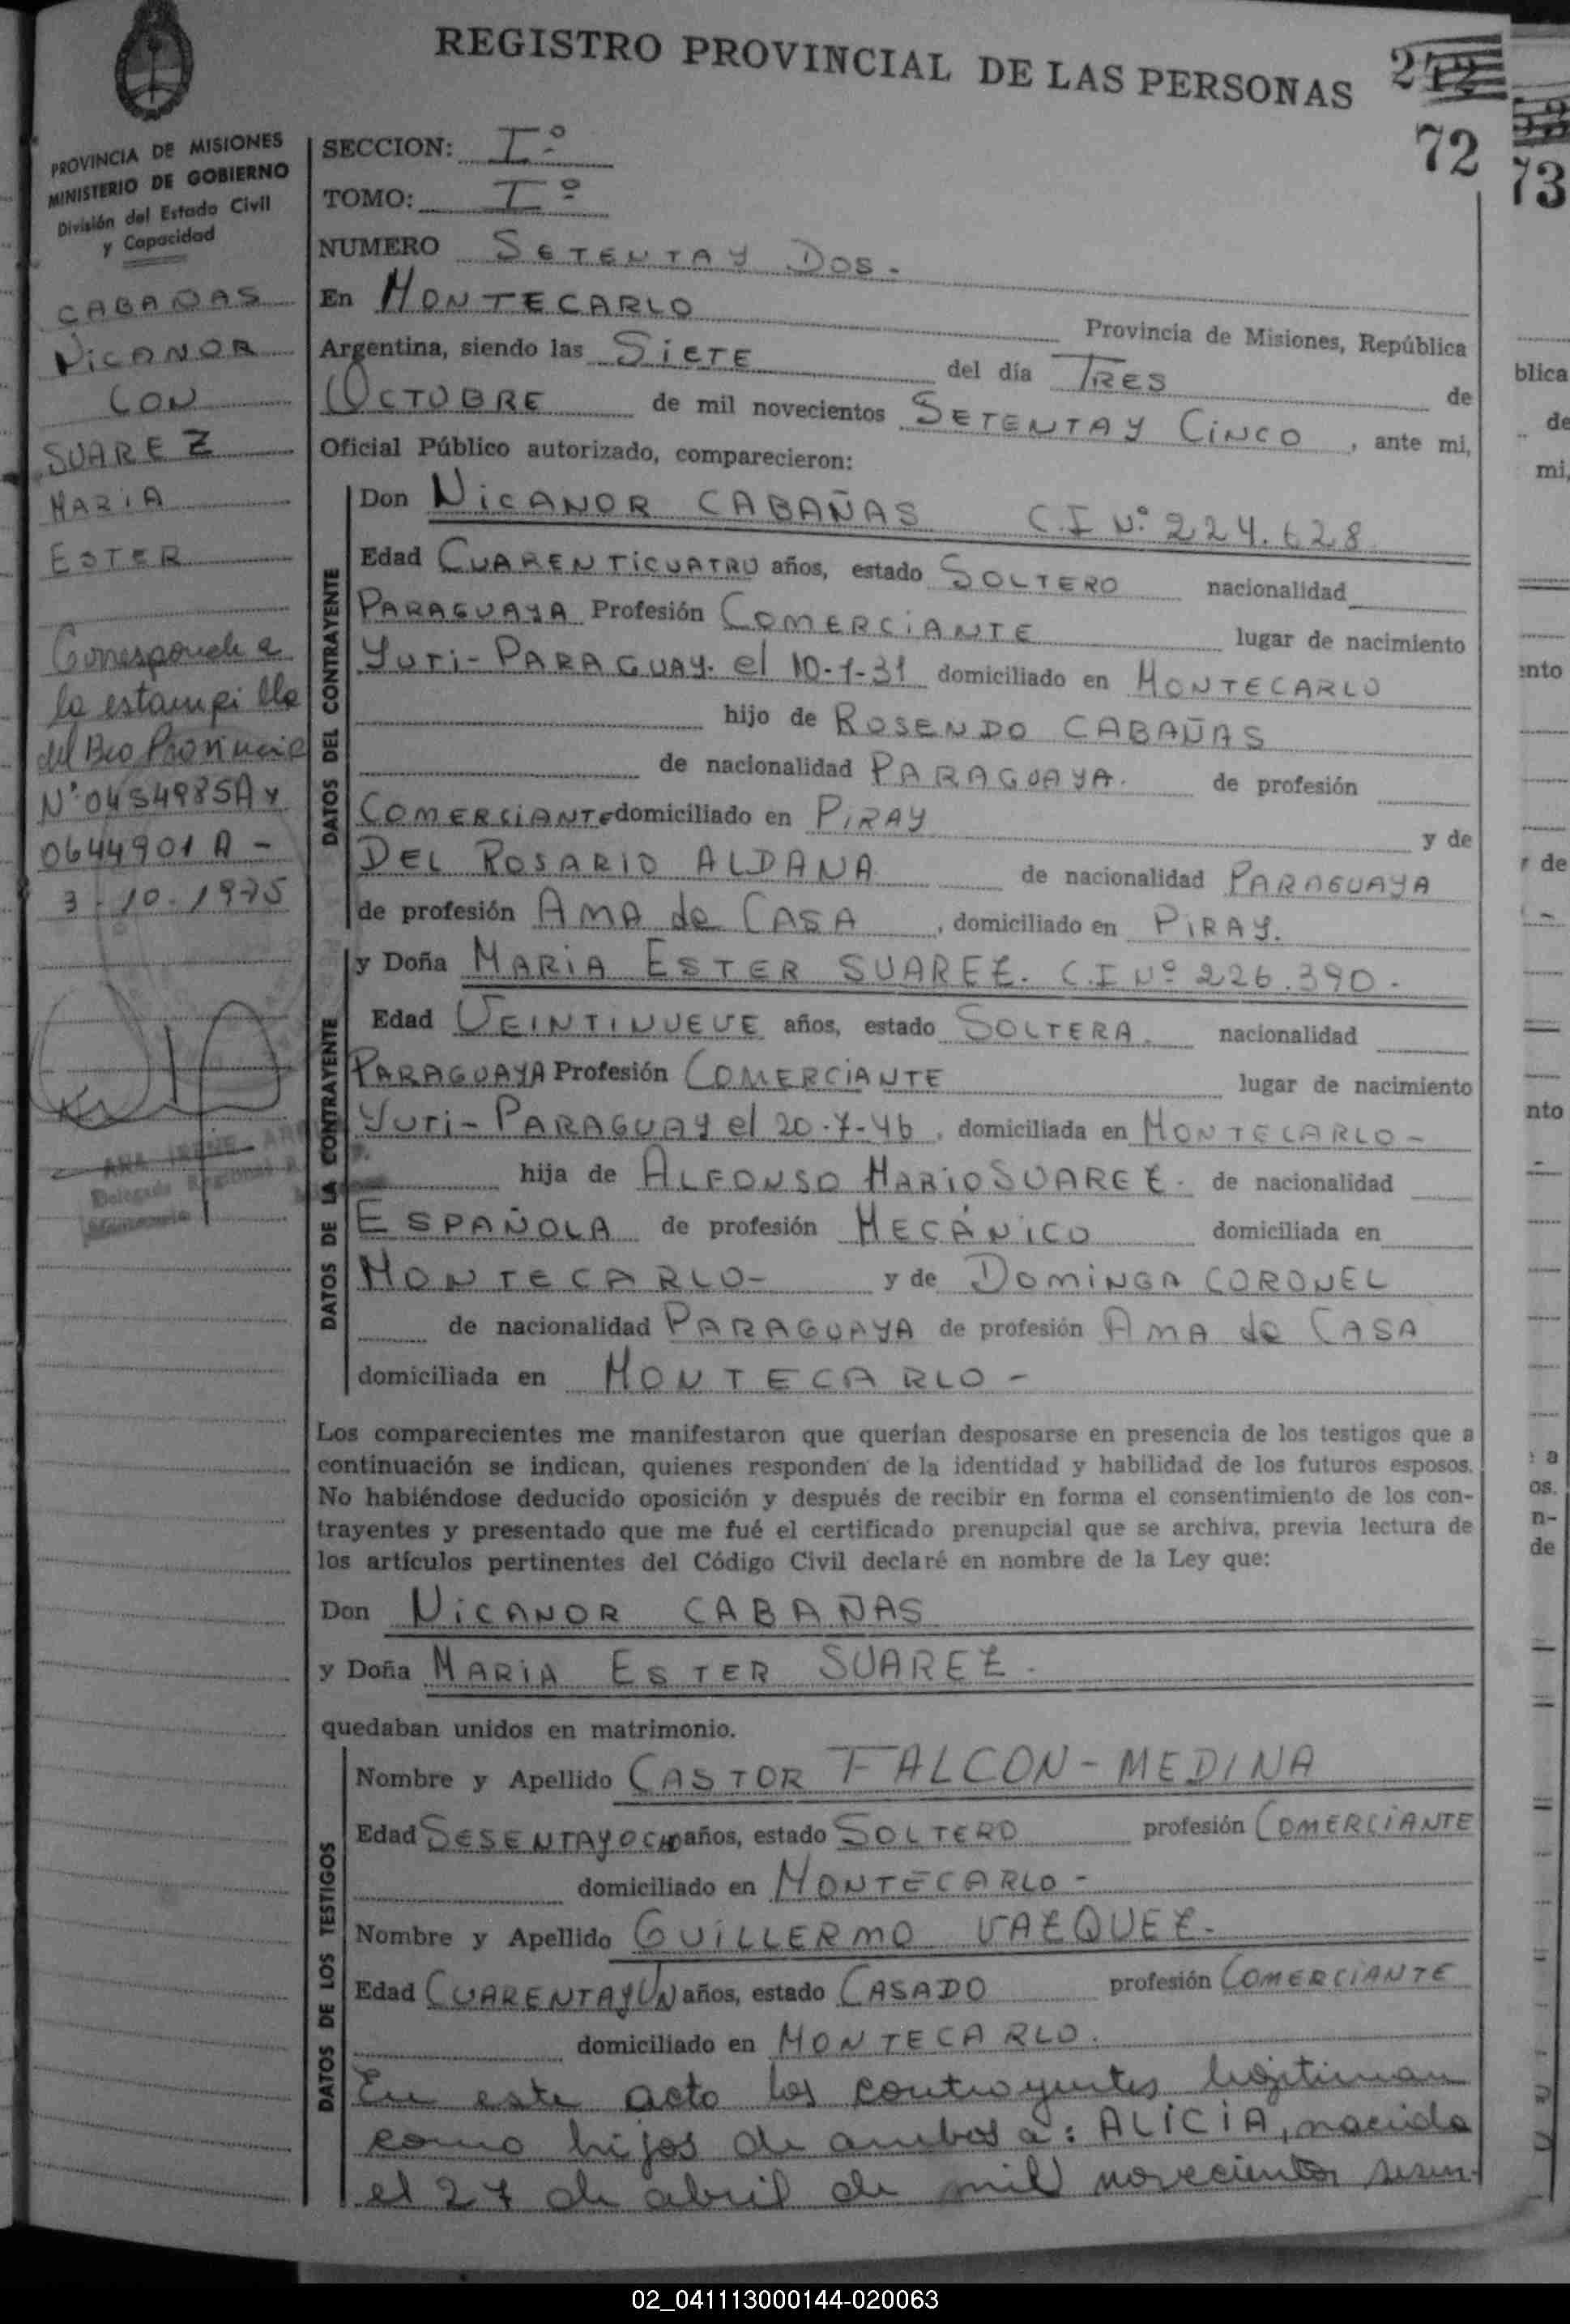 REGISTRO PROVINCIAL DE LAS PERSONAS
72
73
PROVINCIA DE MISIONES
MINISTERIO DE GOBIERNO
División del Estado Civil
y Capacidad
CABAÑAS
NICANOR
CON
SUAREZ
MARIA
ESTER
Corresponde a
la estampilla
del Bco Provincia
N° 0454985A y
0644901 A -
3-10-1975
ANA IRENE
Delegada Regional
SECCION: I°
TOMO: I°
NUMERO SETENTA Y DOS -
En MONTECARLO Provincia de Misiones, República
Argentina, siendo las SIETE del día TRES de
OCTUBRE de mil novecientos SETENTA Y CINCO, ante mi,
Oficial Público autorizado, comparecieron:
DATOS DEL CONTRAYENTE
Don NICANOR CABAÑAS C.I N° 224.628
Edad CUARENTICUATRO años, estado SOLTERO nacionalidad
PARAGUAYA Profesión COMERCIANTE lugar de nacimiento
YUTI-PARAGUAY. el 10-1-31 domiciliado en MONTECARLO
hijo de ROSENDO CABAÑAS
de nacionalidad PARAGUAYA. de profesión
COMERCIANTE domiciliado en PIRAY y de
DEL ROSARIO ALDANA de nacionalidad PARAGUAYA
de profesión AMA de CASA, domiciliado en PIRAY.
DATOS DE LA CONTRAYENTE
y Doña MARIA ESTER SUAREZ. C.I N° 226.390.
Edad VEINTINUEVE años, estado SOLTERA. nacionalidad
PARAGUAYA Profesión COMERCIANTE lugar de nacimiento
YUTI-PARAGUAY el 20-7-46, domiciliada en MONTECARLO-
hija de ALFONSO MARIO SUAREZ. de nacionalidad
ESPAÑOLA de profesión MECÁNICO domiciliada en
MONTECARLO- y de DOMINGA CORONEL
de nacionalidad PARAGUAYA de profesión AMA de CASA
domiciliada en MONTECARLO -
Los comparecientes me manifestaron que querían desposarse en presencia de los testigos que a
continuación se indican, quienes responden de la identidad y habilidad de los futuros esposos.
No habiéndose deducido oposición y después de recibir en forma el consentimiento de los con-
trayentes y presentado que me fué el certificado prenupcial que se archiva, previa lectura de
los artículos pertinentes del Código Civil declaré en nombre de la Ley que:
Don NICANOR CABAÑAS
y Doña MARIA ESTER SUAREZ.
quedaban unidos en matrimonio.
DATOS DE LOS TESTIGOS
Nombre y Apellido CASTOR FALCON-MEDINA
Edad SESENTAYOCHO años, estado SOLTERO profesión COMERCIANTE
domiciliado en MONTECARLO -
Nombre y Apellido GUILLERMO VAZQUEZ.
Edad CUARENTAYUN años, estado CASADO profesión COMERCIANTE
domiciliado en MONTECARLO.
En este acto los contrayentes legitiman
como hijos de ambos a: ALICIA, nacida
el 27 de abril de mil novecientos sesen-
02_041113000144-020063